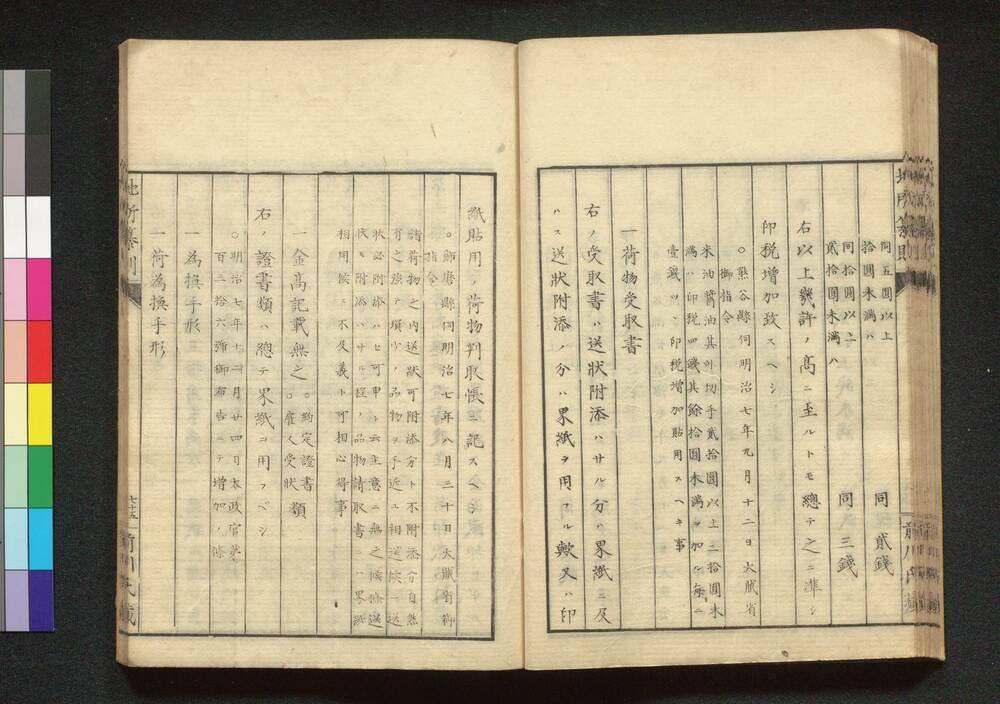 同五圓以上
拾圓未満ハ 同貳錢
同拾圓以上
貳拾圓未満ハ 同三錢
右以上幾許ノ髙ニ至ルトモ總テ之ニ準シ
印税増加致スヘシ
○熊谷縣伺明治七年九月十二日大藏省
御指令
米油醬油其外切手貳拾圓以上三拾圓未
満ハ印税四錢其餘拾圓未満ヲ加フル毎ニ
壹錢ツヽ印税増加貼用スヘキ事
一荷物受取書
右ノ受取書ハ送狀附添ハサル分ハ界紙ニ及
ハス送狀附添ノ分ハ界紙ヲ用フル歟又ハ印
紙貼用ノ荷物判取帳ニ記スヘシ
○飾磨縣伺明治七年八月三十日大藏省御
指令
諸荷物之内送狀可附添分ト不附添分自然
有之強テ瑣少ノ品物ヲ手近ニ相送候ニ送
狀必附添ハセ可申ト云主意ニ無之候條送
狀ヲ附添ハサル程ノ品物請取書ニハ界紙
相用候ニ不及義ト可相心得事
一金髙記載無之 ○約定證書類
○雇人受狀
右ノ證書類ハ總テ界紙ヲ用フヘシ
○明治七年十二月廿四日太政官第
百三拾六號御布告ニテ増加ノ條
一為換手形
一荷為換手形
地所纂
六十五
前川氏藏